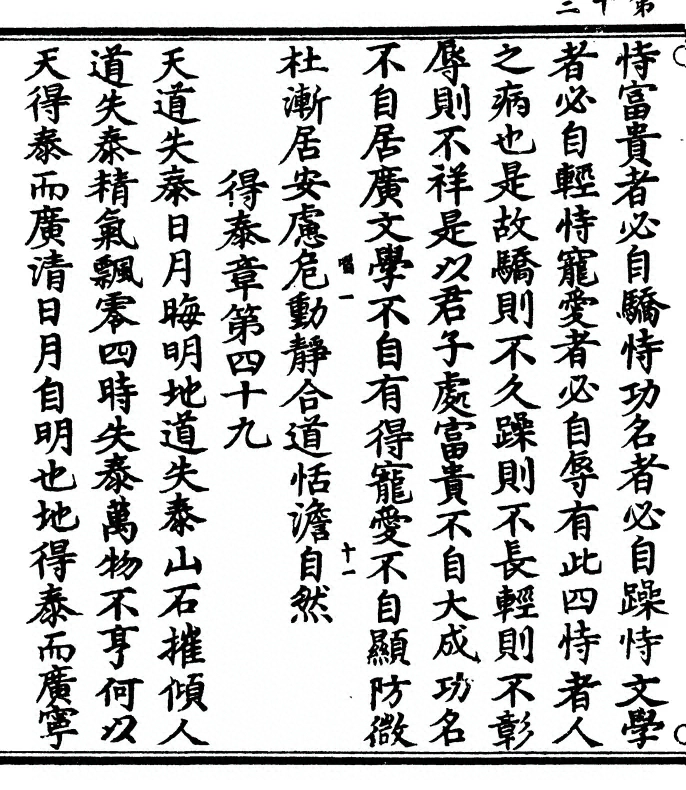 第十二
恃富貴者必自驕恃功名者必自躁恃文學
者必自輕恃寵愛者必自辱有此四恃者人
之病也是故驕則不久躁則不長輕則不彰
辱則不祥是以君子處富貴不自大成功名
不自居廣文學不自有得寵愛不自顯防微
唱一
十一
杜漸居安慮危動靜合道恬澹自然
得泰章第四十九
天道失泰日月晦明地道失泰山石摧傾人
道失泰精氣飄零四時失泰萬物不亨何以
天得泰而廣清日月自明也地得泰而廣寧